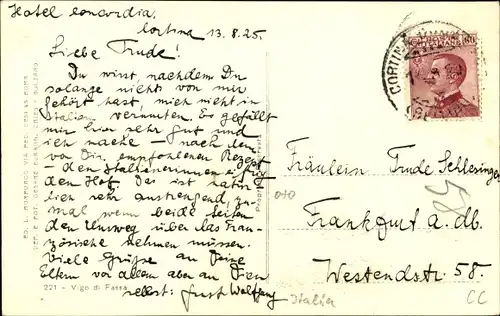 Hotel Concordia
Cortina 13.8.25.
Liebe Trude!
Du wirst, nachdem Du
solange nichts von mir
gehört hast, mich nicht in
Italien vermuten. Es gefällt
mir hier sehr gut und
ich mache – nach dem
von Dir empfohlenen Rezept
den Italienerinnen eifrig
den Hof. Das ist natür-
lich sehr anstrengend, zu-
mal wenn beide Seiten
den Umweg über das Fran-
zösische nehmen müssen.
Viele Grüße an Deine
Eltern vor allem aber an Dich
selbst: Ernst Wolfgang
221 - Vigo di Fassa
CORTINA
60
Fräulein Trude Schlesinger
Frankfurt a. db.
Westendstr 58.
58
Italien
CC